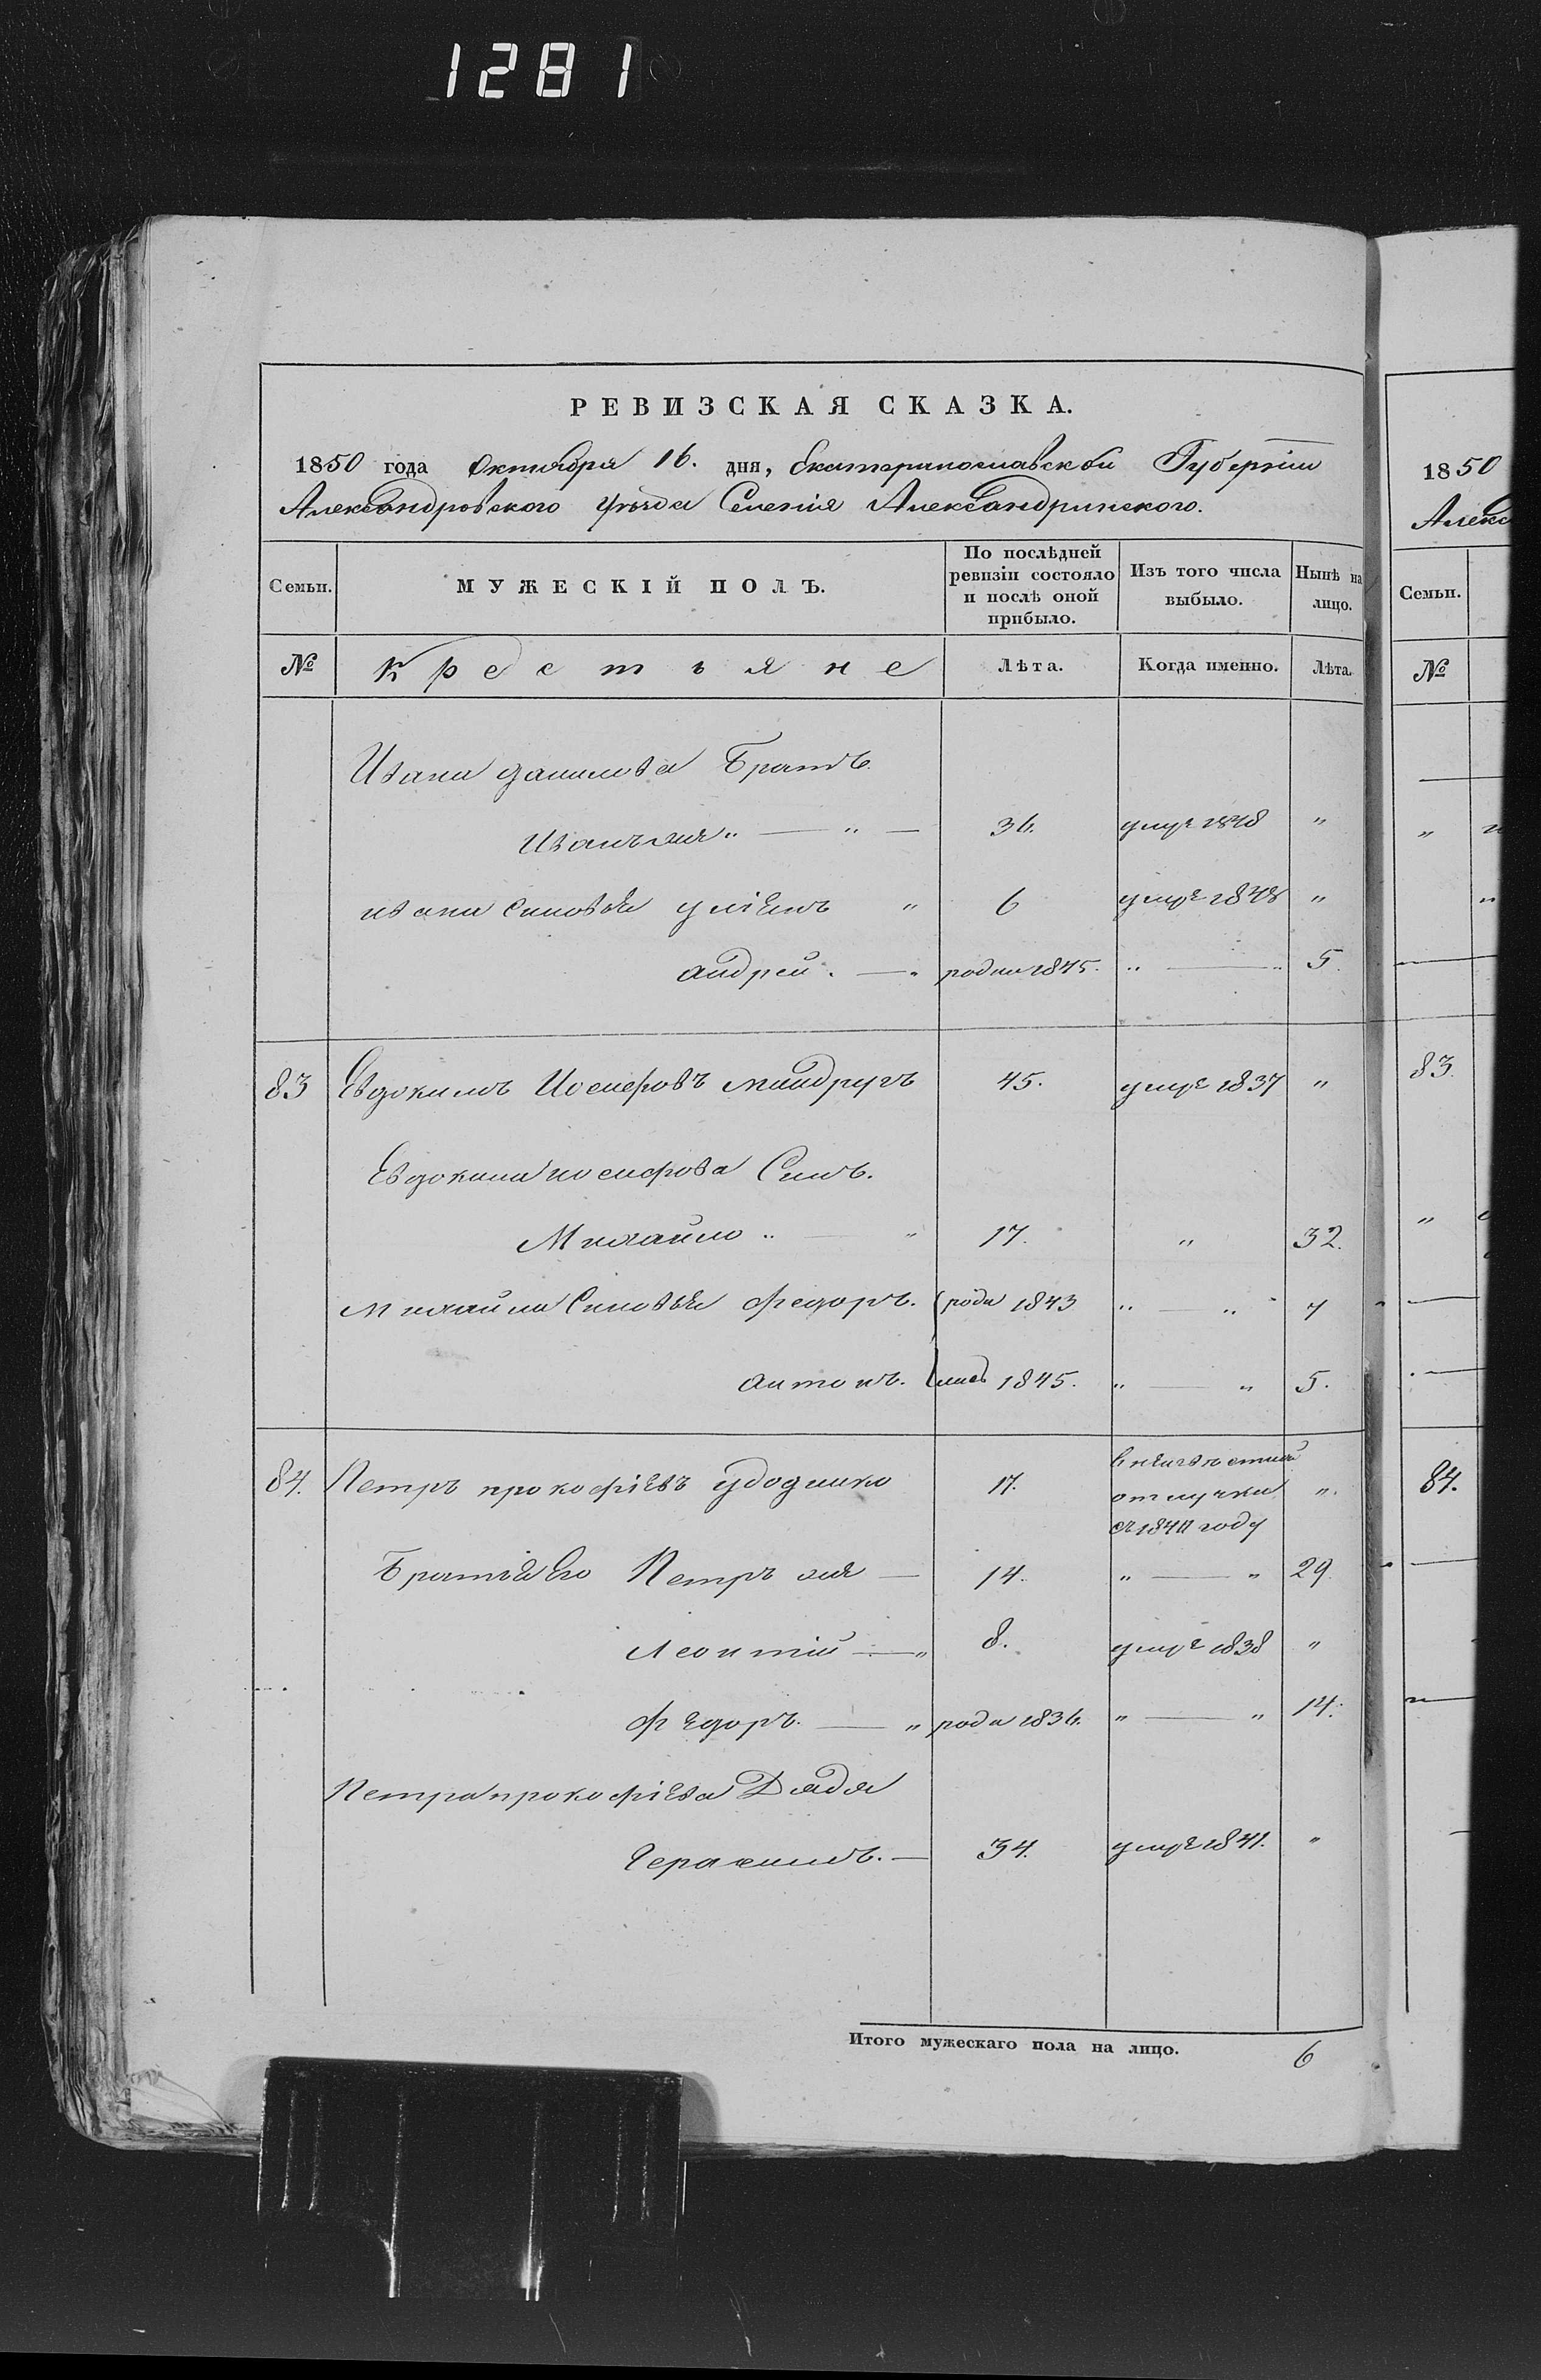 1281
РЕВИЗСКАЯ СКАЗКА.
1850 года Октября 16. дня, Екатеринославской Губерніи
Александровского Уѣзда Селенія Александринского.
Семьи. МУЖЕСКІЙ ПОЛЪ. По послѣдней ревизіи состояло и послѣ оной прибыло. Изъ того числа выбыло. Нынѣ на лицо.
№ Крестьяне Лѣта. Когда именно. Лѣта.
Ивана данилова Братъ
Иванъ жя „ — „ — 36. умре 1848 „
ивана Синовья „ 6 умре „
андрей. — „ родил 1845. „ — „ 5.
83 Евдокимъ Иосифовъ миндругъ 45. умре 1837 „
Евдокима иосифова Синъ.
Михайло „ — „ 17. „ 32.
михайла Синовья федоръ. роди 1843 „ — „ 7
антонъ. лись 1845. „ — „ 5.
84. Петръ прокофіевъ удодинко 17. в неизвѣстной
отлучки „
съ году
Братья Его Петръ жя — 14. „ — „ 29.
Леонтій — „ 8. умре 1838 „
федоръ. — „ роди 1836. „ — „ 14.
Петра прокофіева Дядя
Герасимъ. — 34. умре 1841. „
Итого мужескаго пола на лицо. 6
1850
Алекс
Семьи.
№
83.
84.